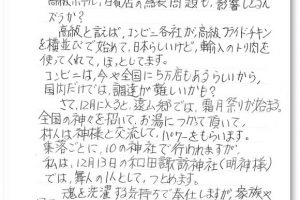 高級ホテル、百貨店の食表示問題も、影響しとるん
ズラか?
高級と言えば、コンビニ各社が、高級フライドチキン
を横並びで始めて、日本らしいけど、輸入のトリ肉を
使ってくれて、ほっとしてます。
コンビニは、今や全国に5万店もあるらしいから、
国内だけでは、調達が難しいかも?
さて、12月に入ると、遠山郷では、霜月祭りが始まる。
全国の神々を招いて、お湯につかって頂いて、
村人は神様と交流して、パワーをもらいます。
集落ごとに、10の神社で行われますが、
私は、12月13日の和田諏訪神社(明神様)
では、舞人の1人として、つとめます。
魂を洗濯する気持ちで奉仕しますが、家族や